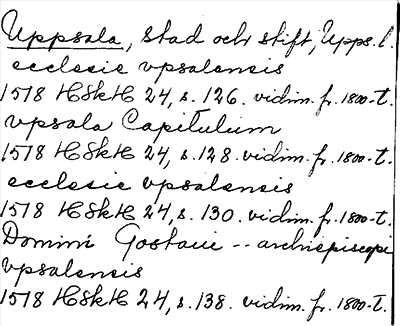 Uppsala, stad och stift, Upps. l.
ecclesie vpsalensis
1578 HSkH 24, s. 126. vidim. fr. 1800-t.
vpsala Capitulum
1578 HSkH 24, s. 128. vidim. fr. 1800-t.
ecclesie vpsalensis
1578 HSkH 24, s. 130. vidim. fr. 1800-t.
Domini Gostaui -- archiepiscopi
vpsalensis
1578 HSkH 24, s. 138. vidim. fr. 1800-t.